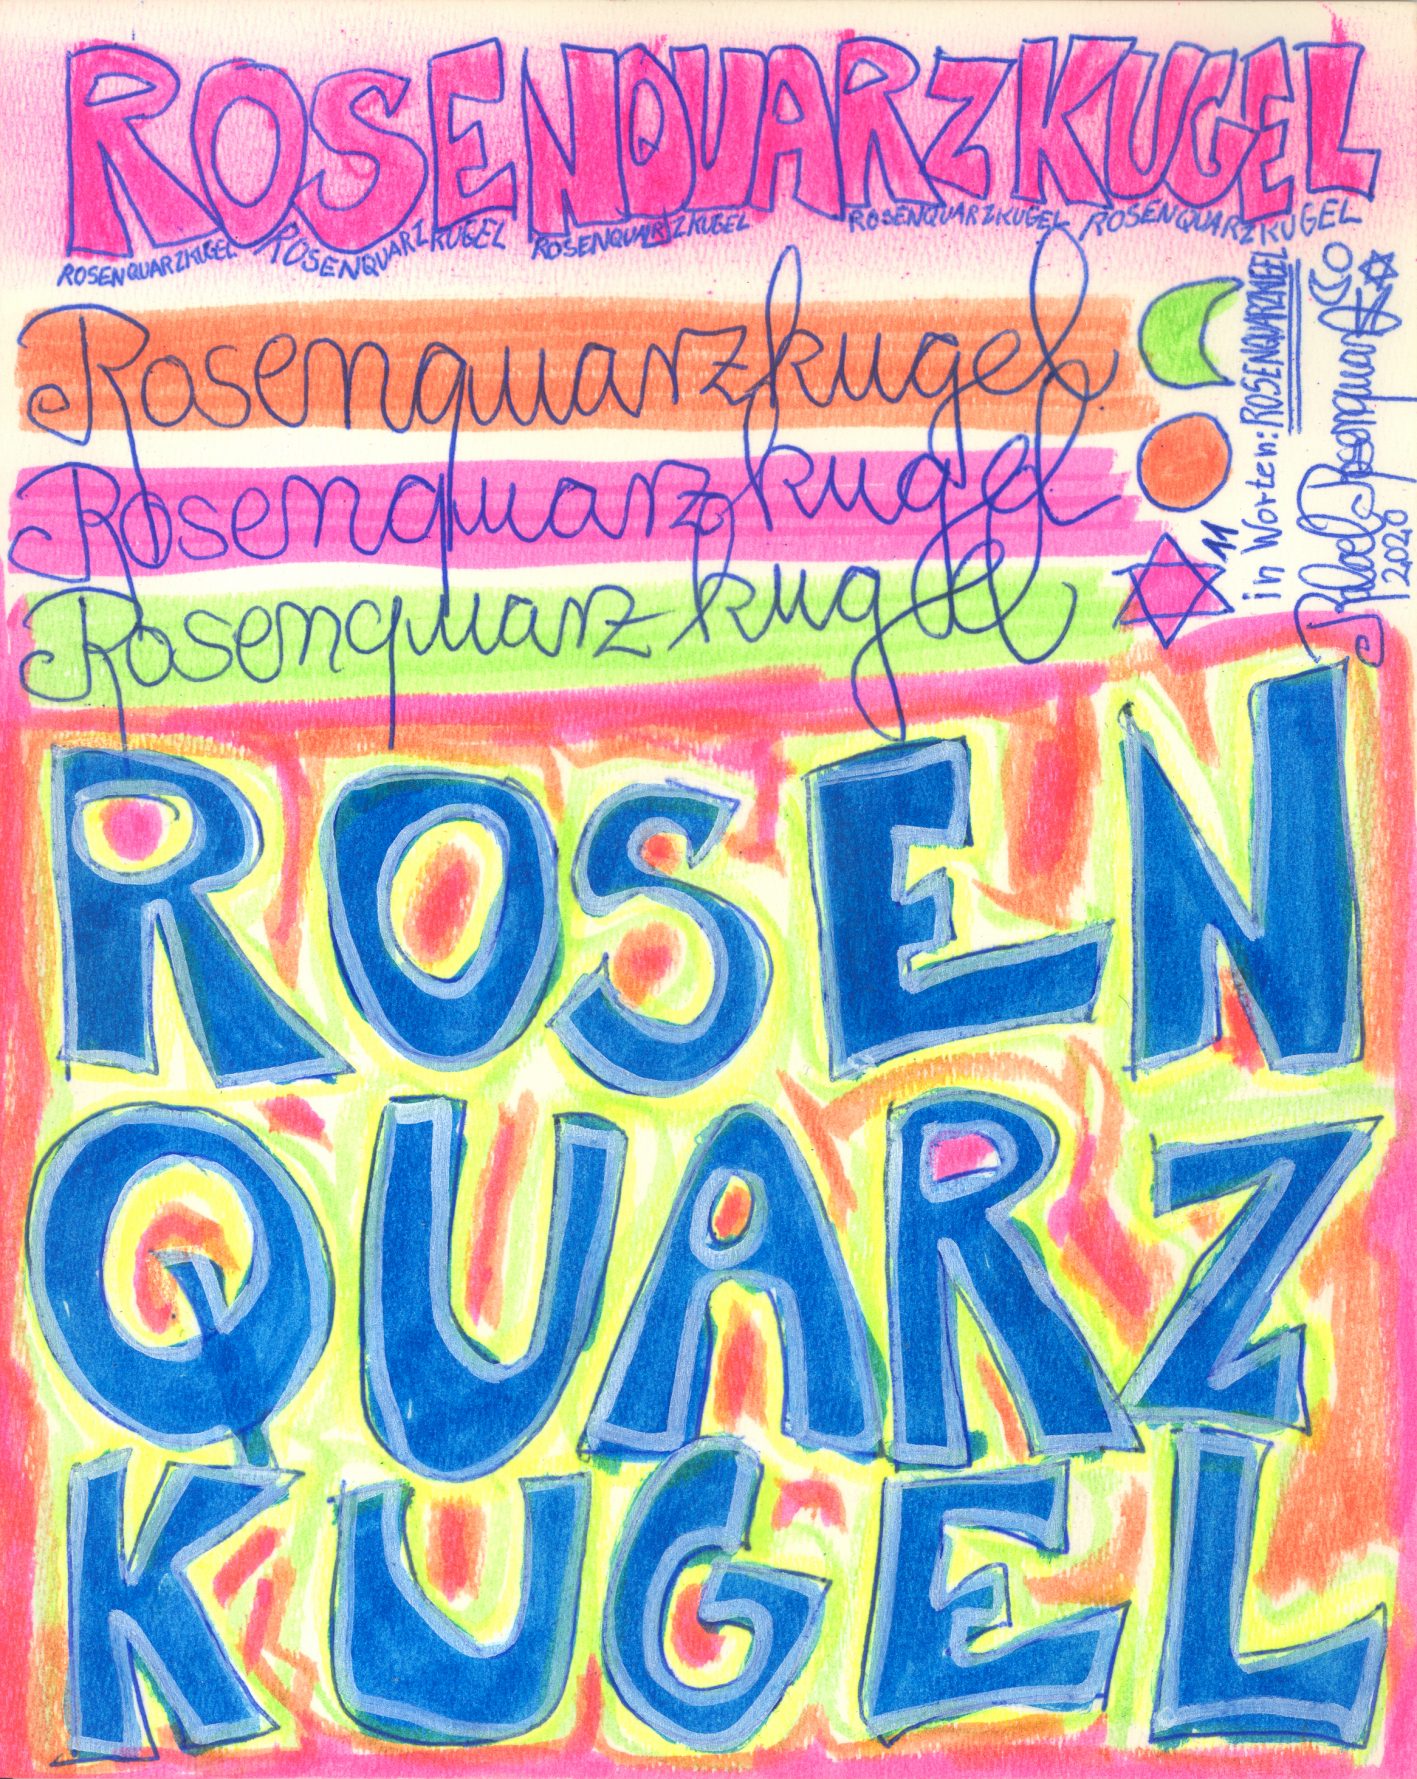 ROSENQUARZKUGEL
ROSENQUARZKUGEL ROSENQUARZKUGEL ROSENQUARZKUGEL ROSENQUARZKUGEL ROSENQUARZKUGEL
Rosenquarzkugel
Rosenquarzkugel
Rosenquarzkugel
11
in Worten: ROSENQUARZKUGEL
Rosenquarz
2020
ROSEN
QUARZ
KUGEL